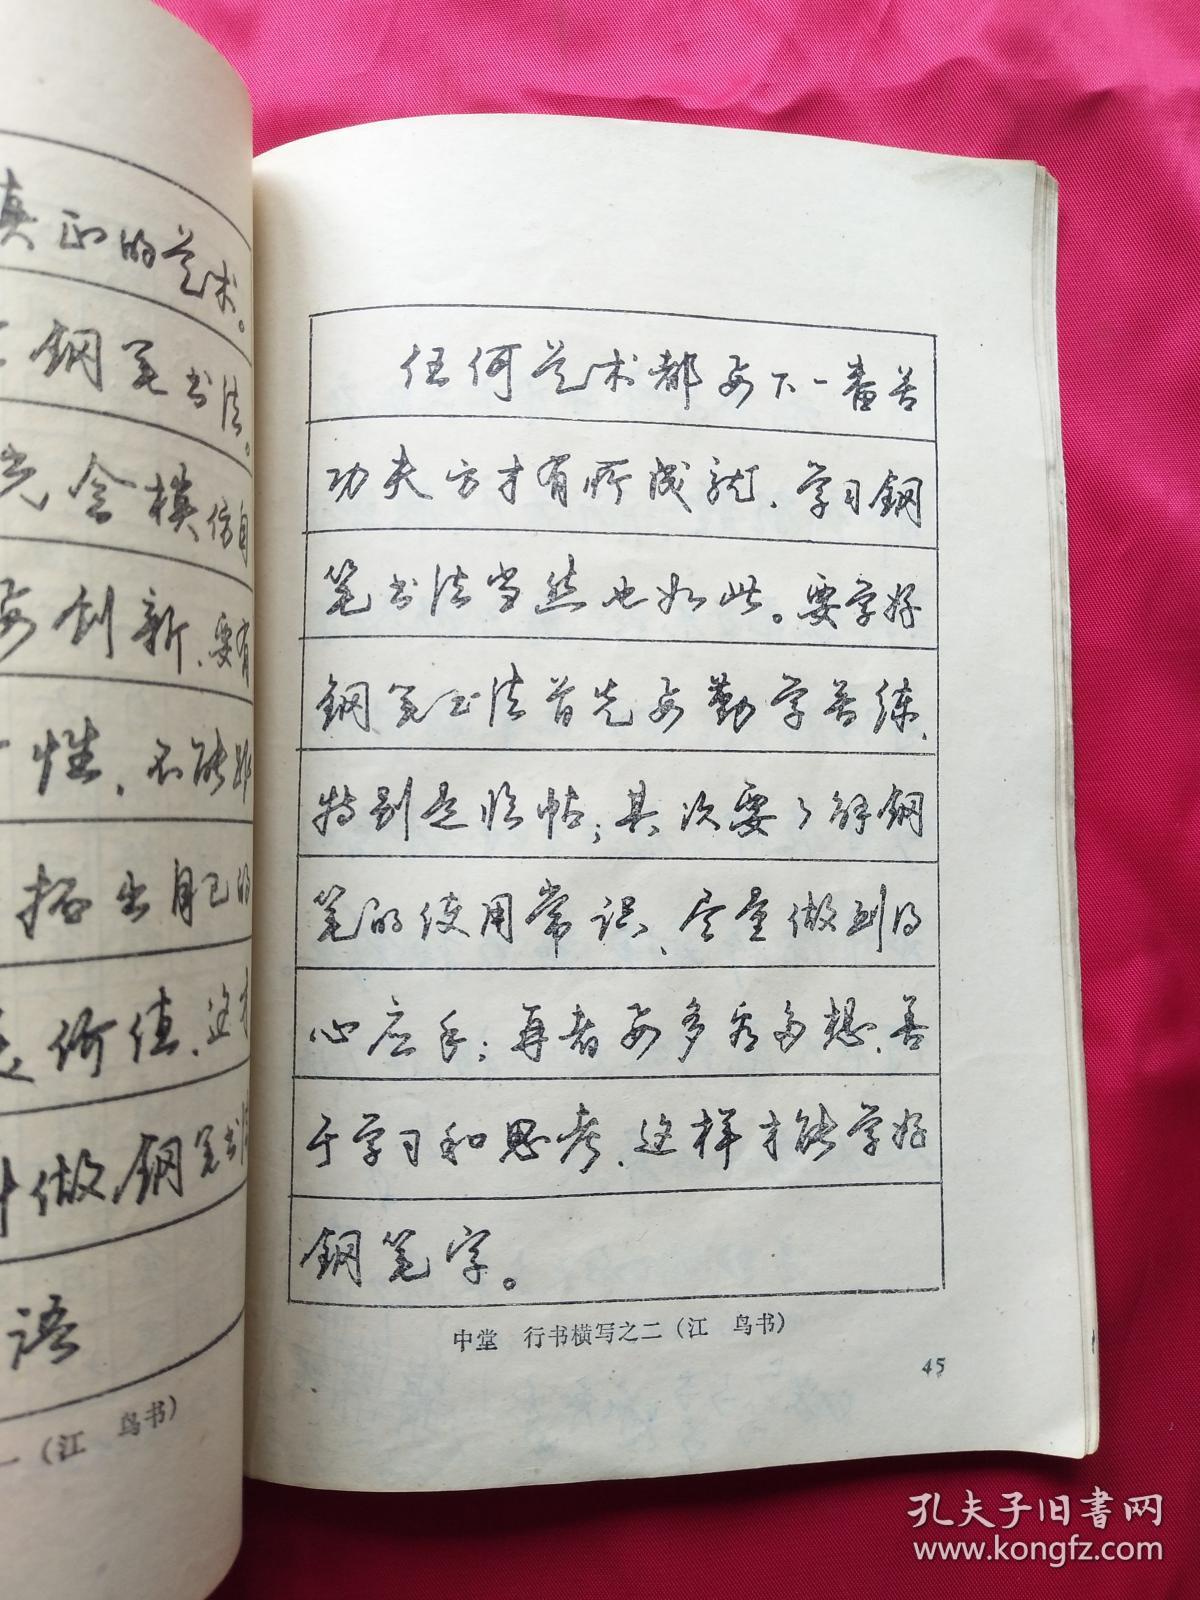 真正的艺术。
钢笔书法。
会模仿自
要创新、要有
性，不能
拓出自己的
价值、这才
做钢笔书法
语
一（江 鸟书）
任何艺术都要下一番苦
功夫方才有所成就、学习钢
笔书法当然也如此。要学好
钢笔书法首先要勤学苦练、
特别是临帖；其次要了解钢
笔的使用常识、尽量做到得
心应手；再者要多看多想、善
于学习和思考、这样才能学好
钢笔字。
中堂 行书横写之二（江 鸟书）
45
孔夫子旧书网
www.kongfz.com